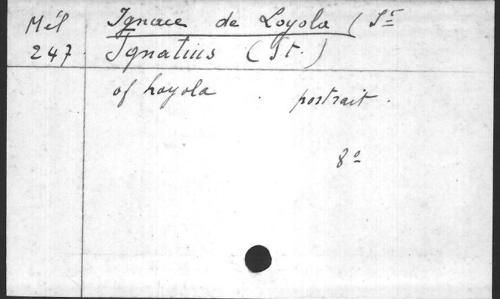 Mél Ignace de Loyola (St
247. Ignatius (St.)
of Loyola . portrait.
8º